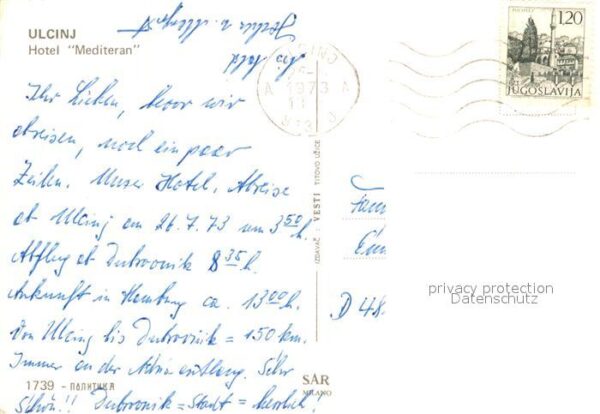 ULCINJ
Hotel "Mediteran"
Ihr Lieben, bevor wir
abreisen, noch ein paar
Zeilen. Unser Hotel, Abreise
ab Ulcinj am 26.7.73 um 3 50 h.
Abflug ab Dubrovnik 8 35 h.
Ankunft in Hamburg ca. 13 00 h.
Von Ulcinj bis Dubrovnik = 150 km.
Immer an der Adria entlang. Sehr
Schön!! Dubrovnik = Stadt = herrlich!
1739 - ПОЛИТИКА
IZDAVAČ: VESTI TITOVO UŽICE
SAR
MILANO
1973
1.20
JUGOSLAVIJA
Fam
D 48
privacy protection
Datenschutz